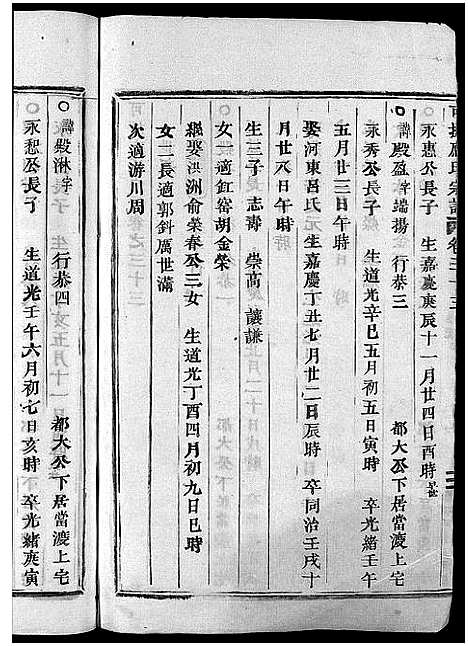 氏宗譜 卷三十三
永惠公長子 生嘉慶庚辰十一月廿四日酉時 早世
○諱殿盈字端揚 行恭三 都大公下居當渡上宅
永秀公長子 生道光辛巳五月初五日寅時 卒光緒壬午
五月廿三日午時
娶河東呂氏元 生嘉慶丁丑七月廿二日辰時 卒同治壬戌十
月廿六日午時
生三子 志壽 崇高 讓謙
女一適釭窑胡金榮
繼娶洪洲俞榮春公三女 生道光丁酉四月初九日巳時
女二長適郭針厲世滿
次適游川周
○諱殿淋字 行恭四 都大公下居當渡上宅
永恕公長子 生道光壬午六月初七日亥時 卒光緒庚寅